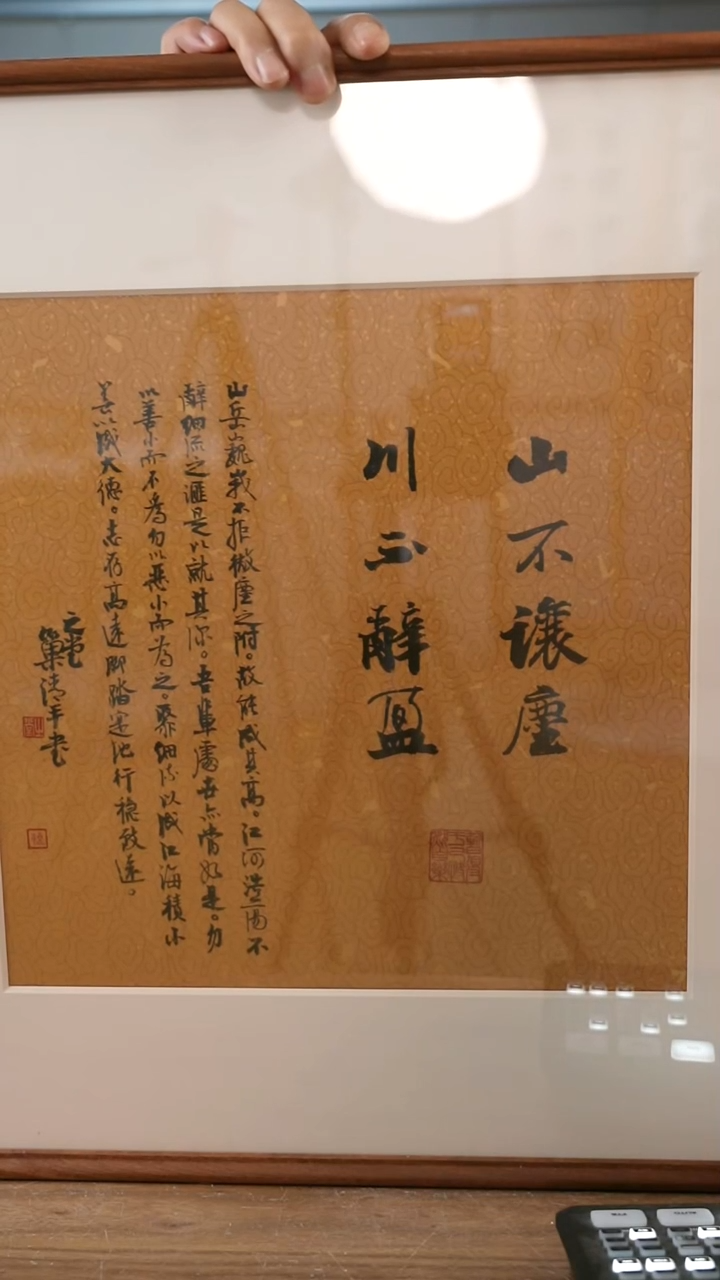 山不讓塵
川不辭盈
山岳巍峩不拒微塵之附。故能成其高。江河浩蕩不
辭細流之滙是以就其深。吾輩處世亦當如是。勿
以善小而不為勿以惡小而為之。聚細流以成江海積小
善以成大德。志存高遠脚踏實地行穩致遠。
巢清平书